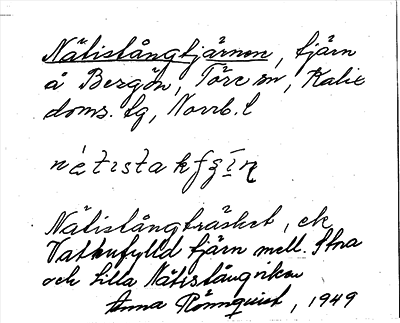 Nätistångtjärnen, tjärn
å Bergön, Töre sn, Kalix
doms. tg, Norrb. l
Nätistångträsket, ek
Vattenfylld tjärn mell. Stora
och Lilla Nätistångviken
Anna Rönnquist, 1949